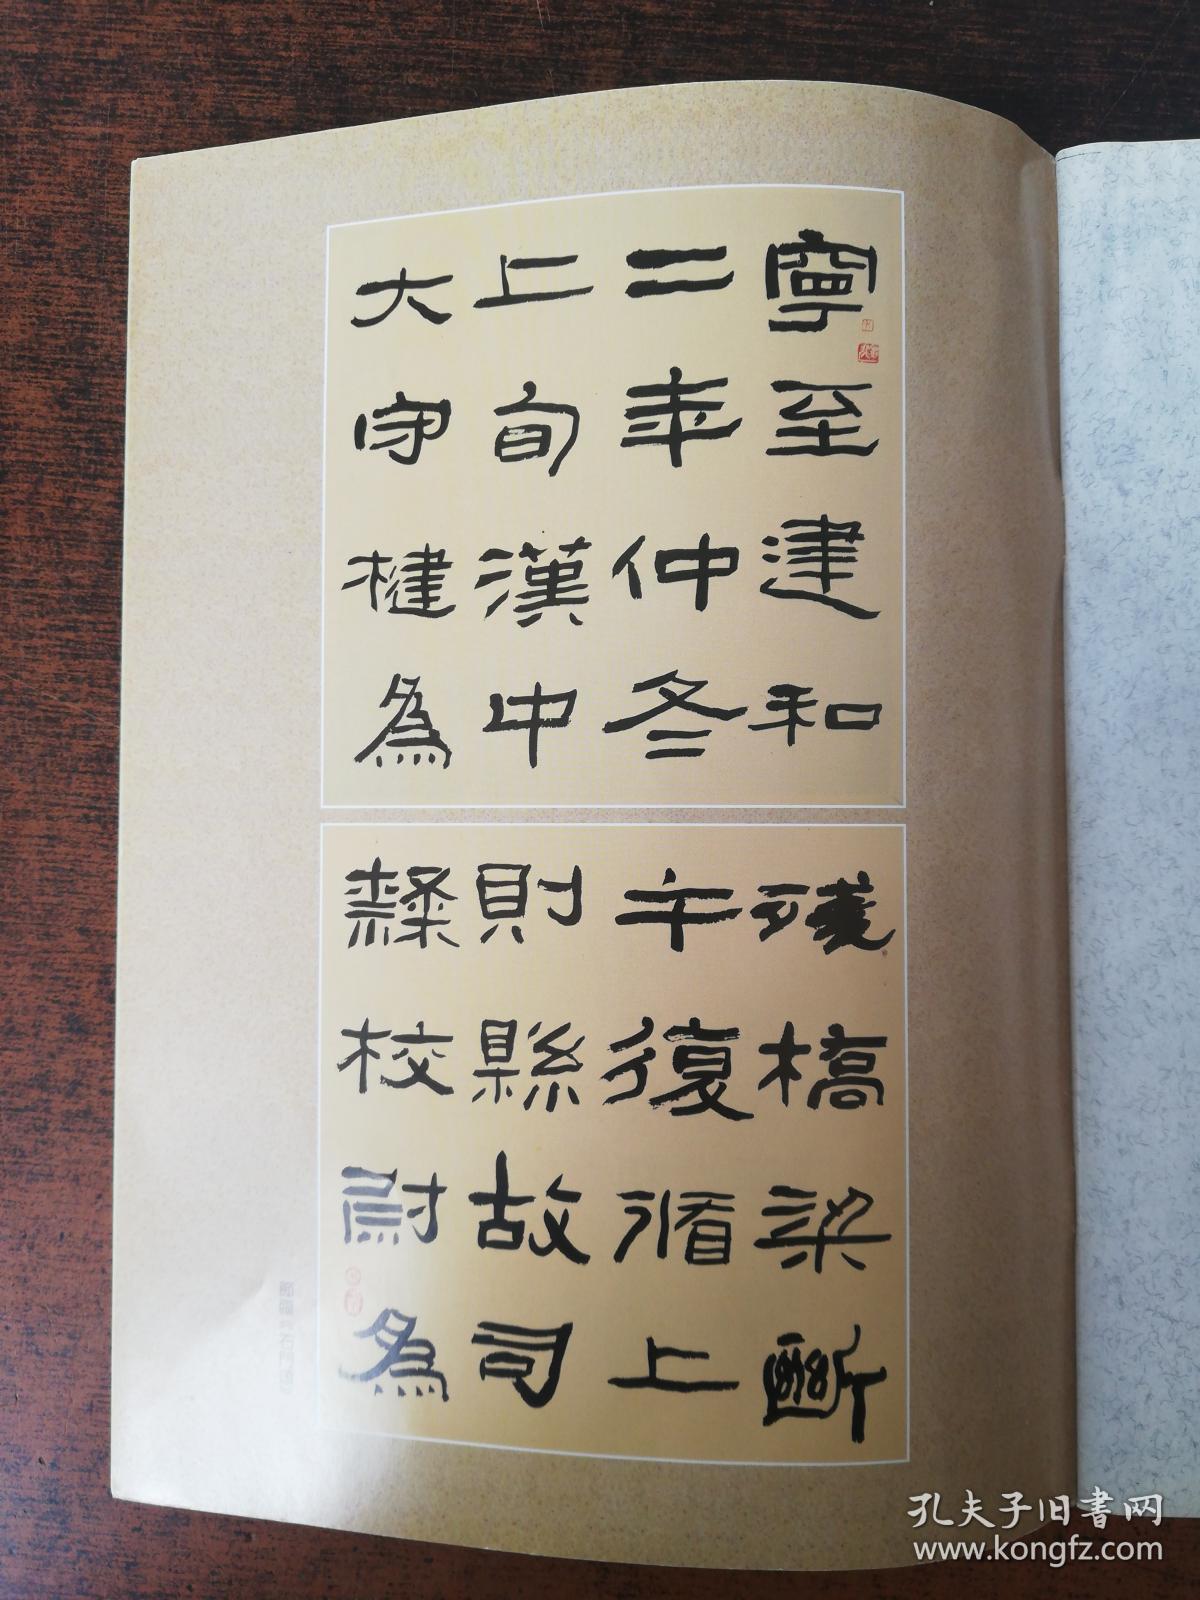 寧至建和
二年仲冬
上旬漢中
大守楗為
殘橋梁斷
子復循上
則縣故司
隸校尉為
孔夫子旧書网
www.kongfz.com